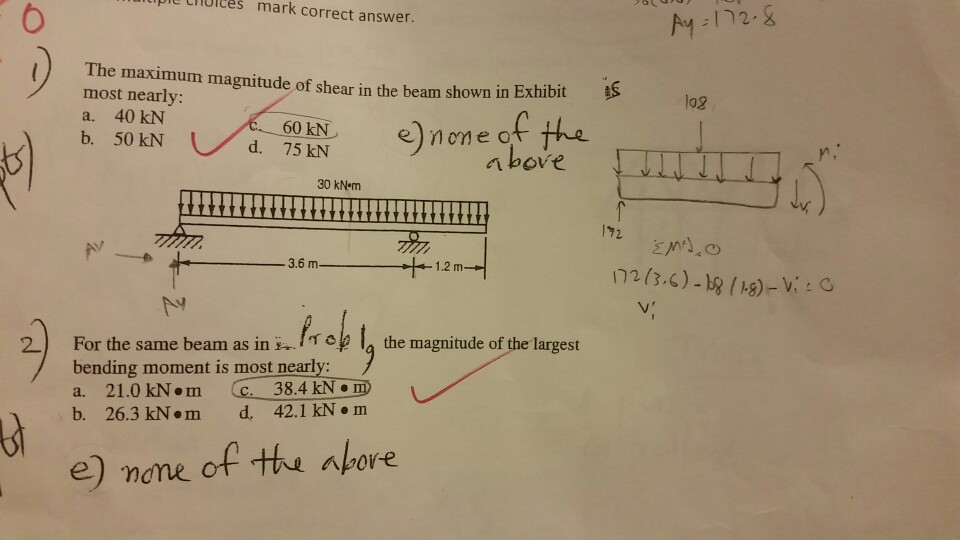 choices mark correct answer.
0
Ay = 172.8
1)
The maximum magnitude of shear in the beam shown in Exhibit is
most nearly:
a. 40 kN
c. 60 kN
b. 50 kN
d. 75 kN
e) none of the
above
30 kN•m
3.6 m
1.2 m
Ay
108
172
ΣM=0
172(3.6) - 108 (1.8) - Vi = 0
Vi
2)
For the same beam as in Prob 1, the magnitude of the largest
bending moment is most nearly:
a. 21.0 kN • m
c. 38.4 kN • m
b. 26.3 kN • m
d. 42.1 kN • m
e) none of the above